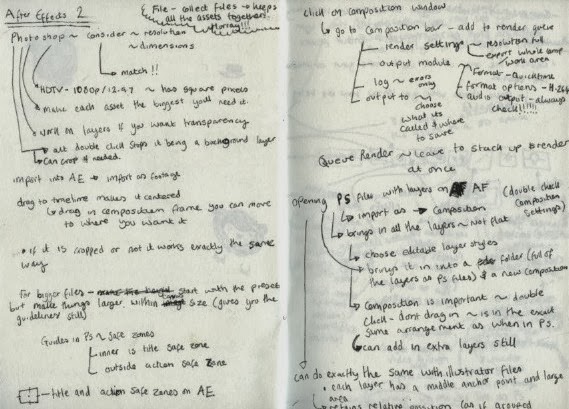 After Effects 2
{ File - collect files → keeps
all the assets together!
Horray!!!
Photoshop ~ consider ~ resolution
~ dimensions
match!!
HDTV - 1080p / 29.97 ~ has square pixels
Make each asset the biggest you'll need it.
Work on layers if you want transparency
alt double click stops it being a background layer
Can crop if needed.
import into AE → import as footage
drag to timeline makes it centered
drag in composition frame you can move
to where you want it
• if it is cropped or not it works exactly the same
way
For bigger files - start with the preset
but make things larger within size (gives you the
guidelines still)
Guides in Ps ~ Safe zones
inner is title safe zone
outside action safe zone
- title and action safe zones on AE
Click on composition window
go to composition bar - add to render queue
render settings
resolution full
export whole comp
work area
output module
Format - Quicktime
format options - H.264
audio output - always
check!!!!!
log ~ errors
only
output to ~ choose
what its
called & where
to save
Queue Render ~ leave to stack up & render
at once
Opening PS files with layers on AF (double check
Composition
Settings)
import as → Composition
brings in all the layers ~ Not flat
choose editable layer styles
brings it in into a folder (full of
the layers as PS files) & a new composition
Composition is important ~ double
click - dont drag in ~ is in the exact
same arrangement as when in PS.
can add in extra layers still
can do exactly the same with illustrator files
• each layer has a middle anchor point and large
area
retains relative position can if grouped